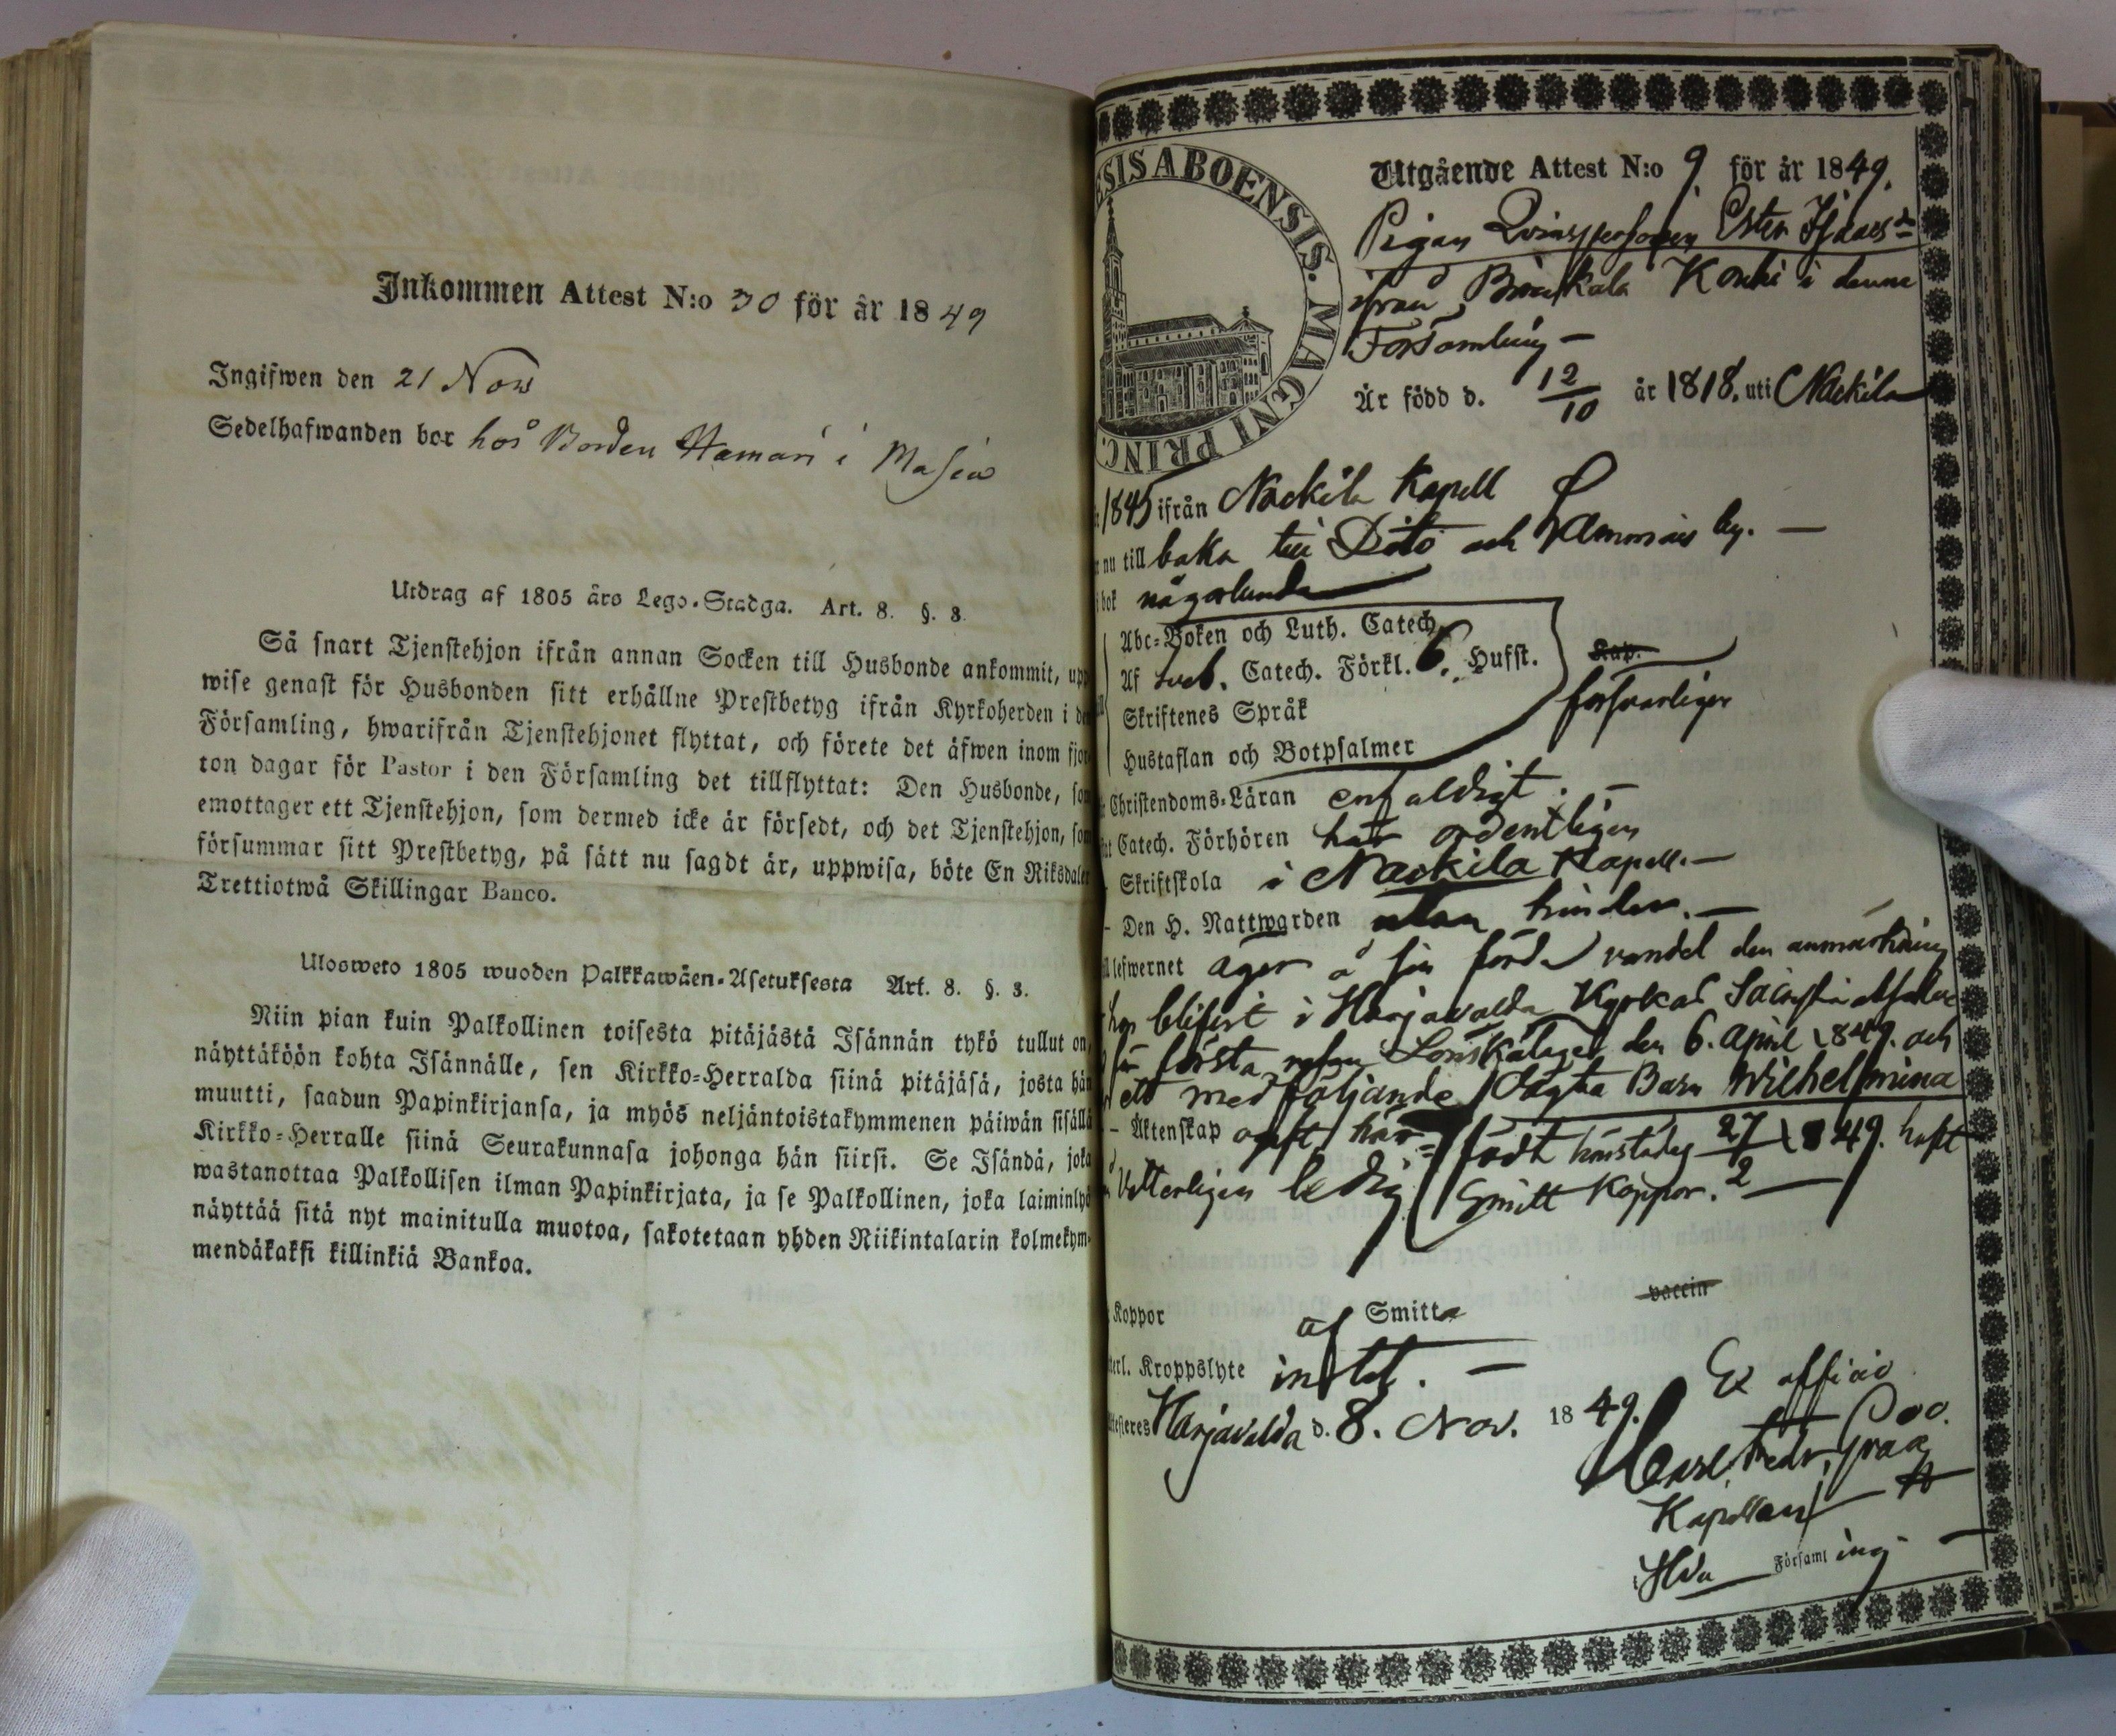 Inkommen Attest N:o 30 för år 1849
Ingifwen den 21 Nov
Sedelhafwanden bor hos Bonden Hamari i Masia
Utdrag af 1805 års Lego-Stadga. Art. 8. §. 3.
Så snart Tjenstehjon ifrån annan Socken till Husbonde ankommit, upp
wise genast för Husbonden sitt erhållne Prestbetyg ifrån Kyrkoherden i de
Församling, hwarifrån Tjenstehjonet flyttat, och förete det äfwen inom fjor
ton dagar för Pastor i den Församling det tillflyttat: Den Husbonde, som
emottager ett Tjenstehjon, som dermed icke är försedt, och det Tjenstehjon, som
försummar sitt Prestbetyg, på sätt nu sagdt är, uppwisa, böte En Riksdaler
Trettiotwå Skillingar Banco.
Ulosweto 1805 wuoden Palkkawäen-Asetuksesta Art. 8. §. 3.
Niin pian kuin Palkollinen toisesta pitäjästä Isännän tykö tullut on,
näyttäköön kohta Isännälle, sen Kirkko-Herralda siinä pitäjäsä, josta hän
muutti, saadun Papinkirjansa, ja myös neljäntoistakymmenen päiwän sisällä
Kirkko-Herralle siinä Seurakunnasa johonga hän siirsi. Se Isändä, joka
wastanottaa Palkollisen ilman Papinkirjata, ja se Palkollinen, joka laiminlyö
näyttää sitä nyt mainitulla muotoa, sakotetaan yhden Riikintalarin kolmekym-
mendäkaksi killinkiä Bankoa.
ESIS ABOENSIS. MAGNI PRINC.
Utgående Attest N:o 9 för år 1849.
Pigan Qvinspersonen Ester Isaacsdr
ifrån Konki i denna
Församling –
Är född d. 12/10 år 1818. uti Nackila
1845 ifrån Nackila Kapell
nu till baka till Dito och by. –
bok någorlunda
Abc-Boken och Luth. Catech.
Af Sveb. Catech. Förkl. 6. Hufst.
Kap.
försvarligen
Skriftenes Språk
Hustaflan och Botpsalmer
Christendoms-Läran enfaldigt. –
Catech. Förhören här ordentligen
Skriftskola i Nackila Kapell. –
Den H. Nattwarden utan hinder. –
lefwernet äger å sin förda vandel den anmärkning
hon blifvit i Harjavalda Kyrkas Sacristia
första Lönskaläget den 6. April 1849. och
med följande Oägta Barn Wilhelmina
Äktenskap ogift, här
födt härstädes 27/2 1849. haft
ledig
Smitt Koppor.
Koppor af Smitta
vaccin
Kroppslyte intet. –
Ex officio
Harjavalda d. 8. Nov. 1849.
Carl Fredr.
Kapellan
i Hda Församling –